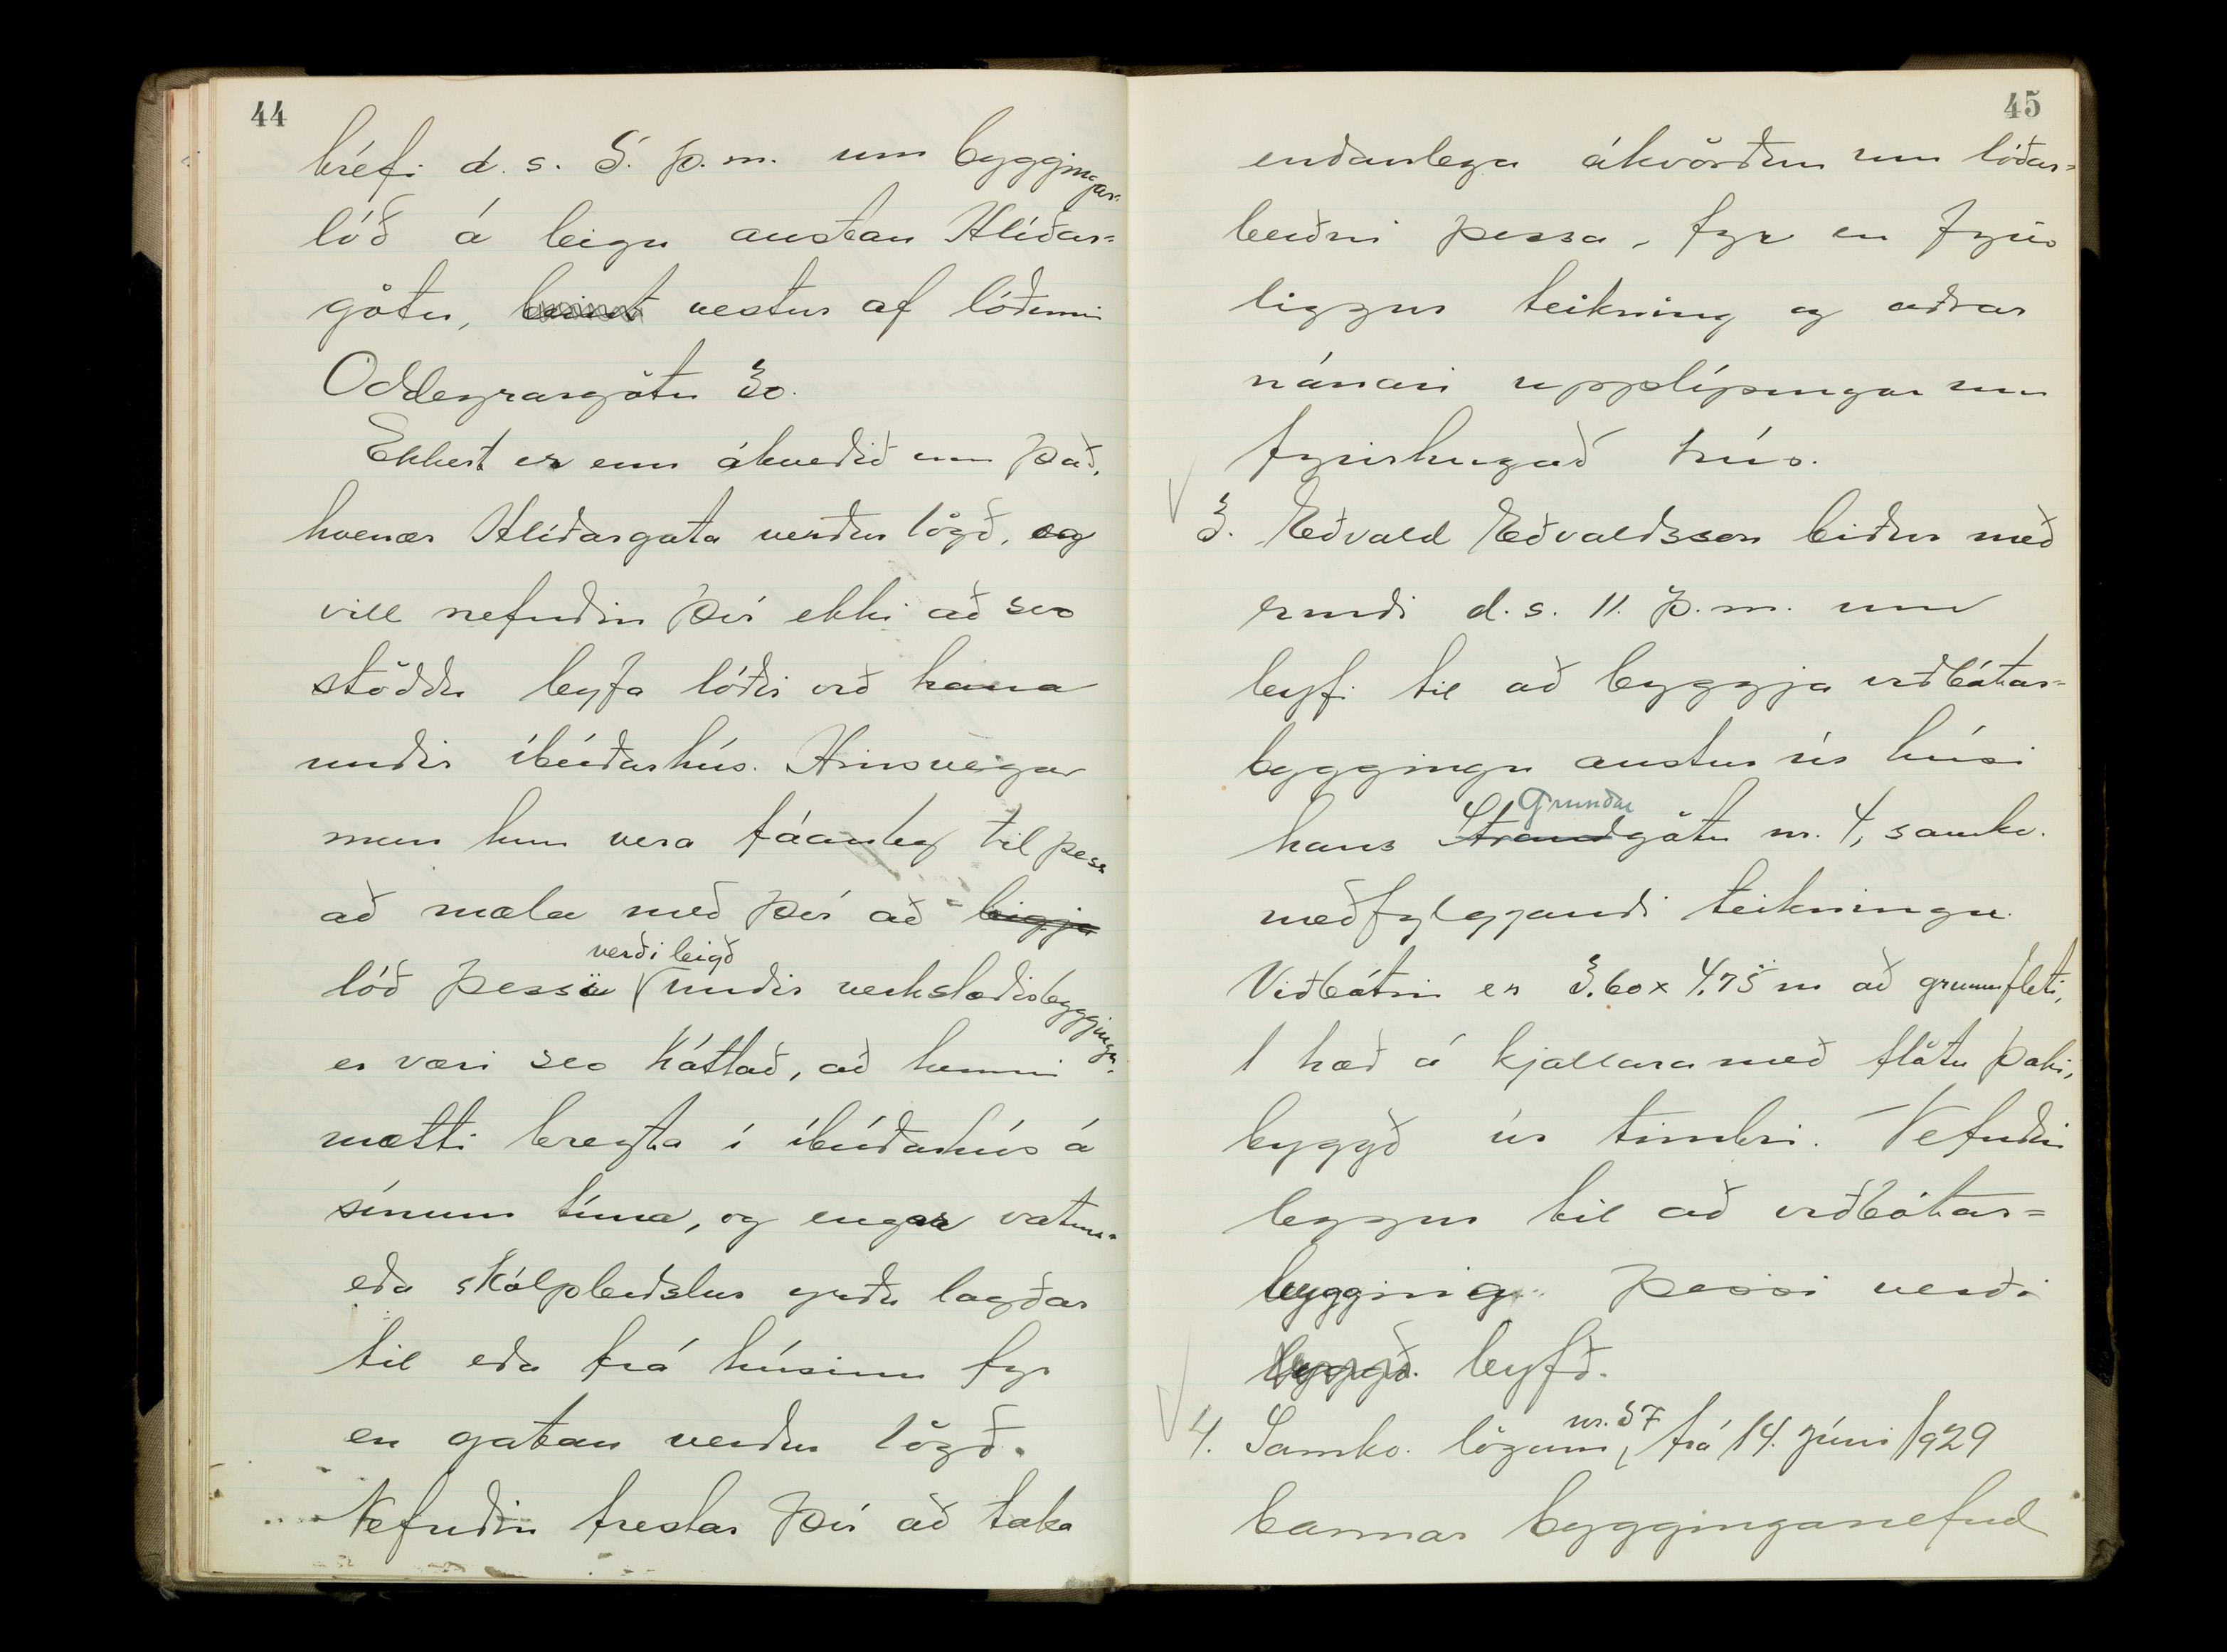 44
bréfi d.s. 5. þ.m. um byggingar-
lóð á leigu austan Hlíðar=
götu, beint vestur af lóðinni
Oddeyrargötu 30.
Ekkert er enn ákveðið um það,
hvenær Hlíðargata verður lögð, og
vill nefndin því ekki að svo
stöddu leyfa lóðir við hana
undir íbúðarhús. Hinsvegar
mun hún vera fáanleg til þess
að mæla með því að leigja
verði leigð
lóð þessi undir verkstæðisbyggingu,
er væri svo háttað, að henni
mætti breyta í íbúðarhús á
sínum tíma, og engar vatns-
eða skólpleiðslur yrðu lagðar
til eða frá húsinu fyr
en gatan verður lögð.
Nefndin frestar því að taka
45
endanlega ákvörðun um lóðar=
beiðni þessa, fyr en fyrir
liggur teikning og aðrar
nánari upplýsingar um
fyrirhugað hús.
3. Eðvald Eðvaldsson biður með
erindi d.s. 11. þ.m. um
leyfi til að byggja viðbótar=
byggingu austur úr húsi
Grundar
hans Strandgötu nr. 4, samkv.
meðfylgjandi teikningu.
Viðbótin er 3.60 x 4.75 m að grunnfleti,
1 hæð á kjallara með flötu þaki,
byggð úr timbri. Nefndin
leggur til að viðbótar=
bygging þessi verði
byggð. leyfð.
nr. 57
4. Samkv. lögum, frá 14. júní 1929
bannar bygginganefnd